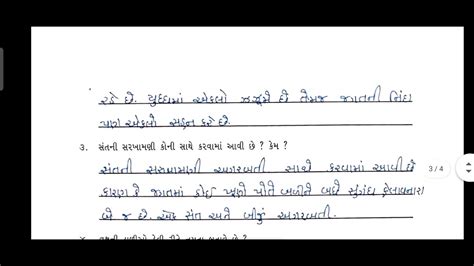 રડે છે. યુદ્ધમાં એકલો ઝઝૂમે છે તેમજ જગતની નિંદા
પણ એકલો સહન કરે છે.
૩. સંતની સરખામણી કોની સાથે કરવામાં આવી છે ? કેમ ?
સંતની સરખામણી અગરબત્તી સાથે કરવામાં આવી છે
કારણ કે જગતમાં કોઈ ખૂણે પોતે બળીને બધે સુગંધ ફેલાવનારા
બે જ છે. એક સંત અને બીજું અગરબત્તી.
3/4